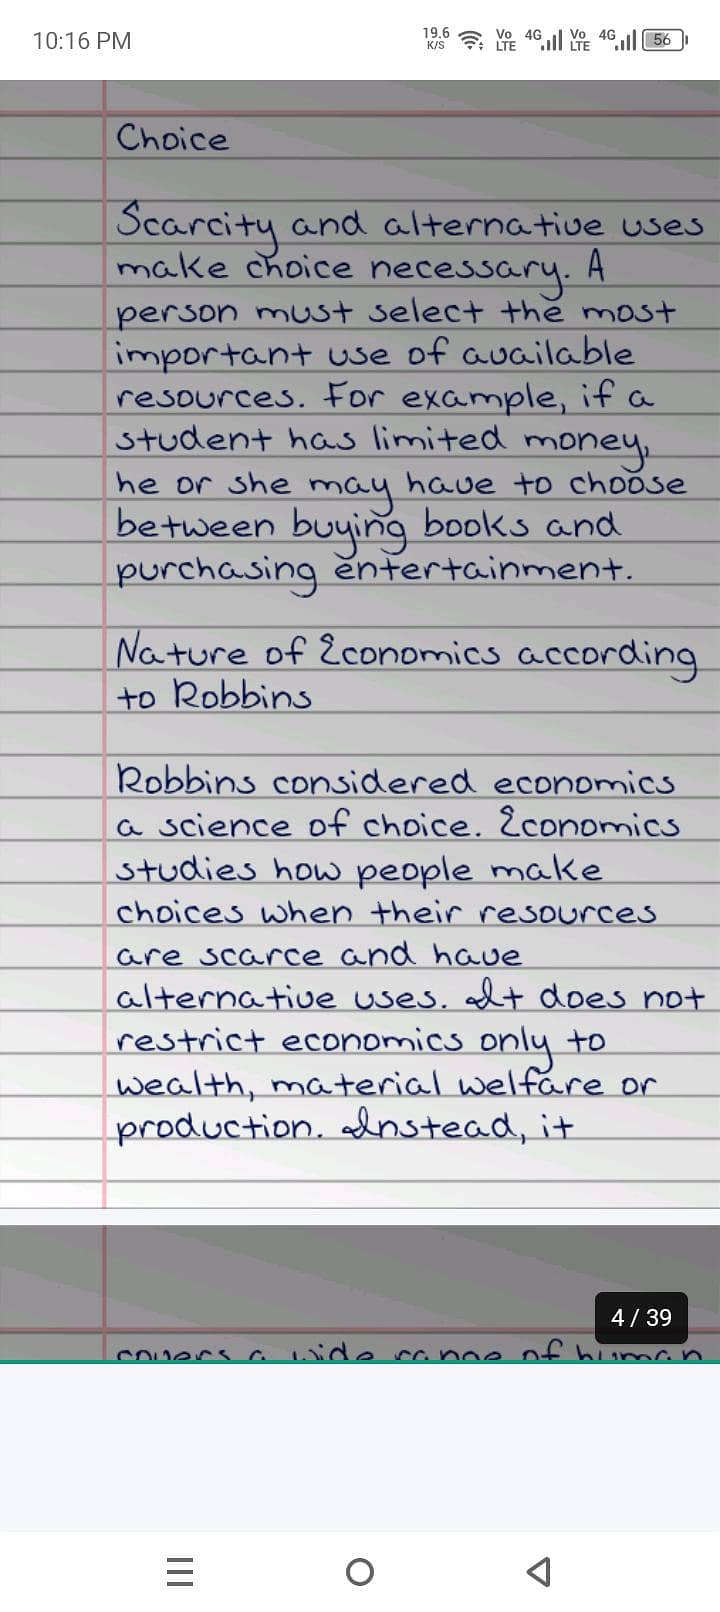 10:16 PM
19.6 K/S Vo LTE 4G Vo LTE 4G 56
Choice
Scarcity and alternative uses
make choice necessary. A
person must select the most
important use of available
resources. For example, if a
student has limited money,
he or she may have to choose
between buying books and
purchasing entertainment.
Nature of Economics according
to Robbins
Robbins considered economics
a science of choice. Economics
studies how people make
choices when their resources
are scarce and have
alternative uses. It does not
restrict economics only to
wealth, material welfare or
production. Instead, it
4 / 39
covers a wide range of human